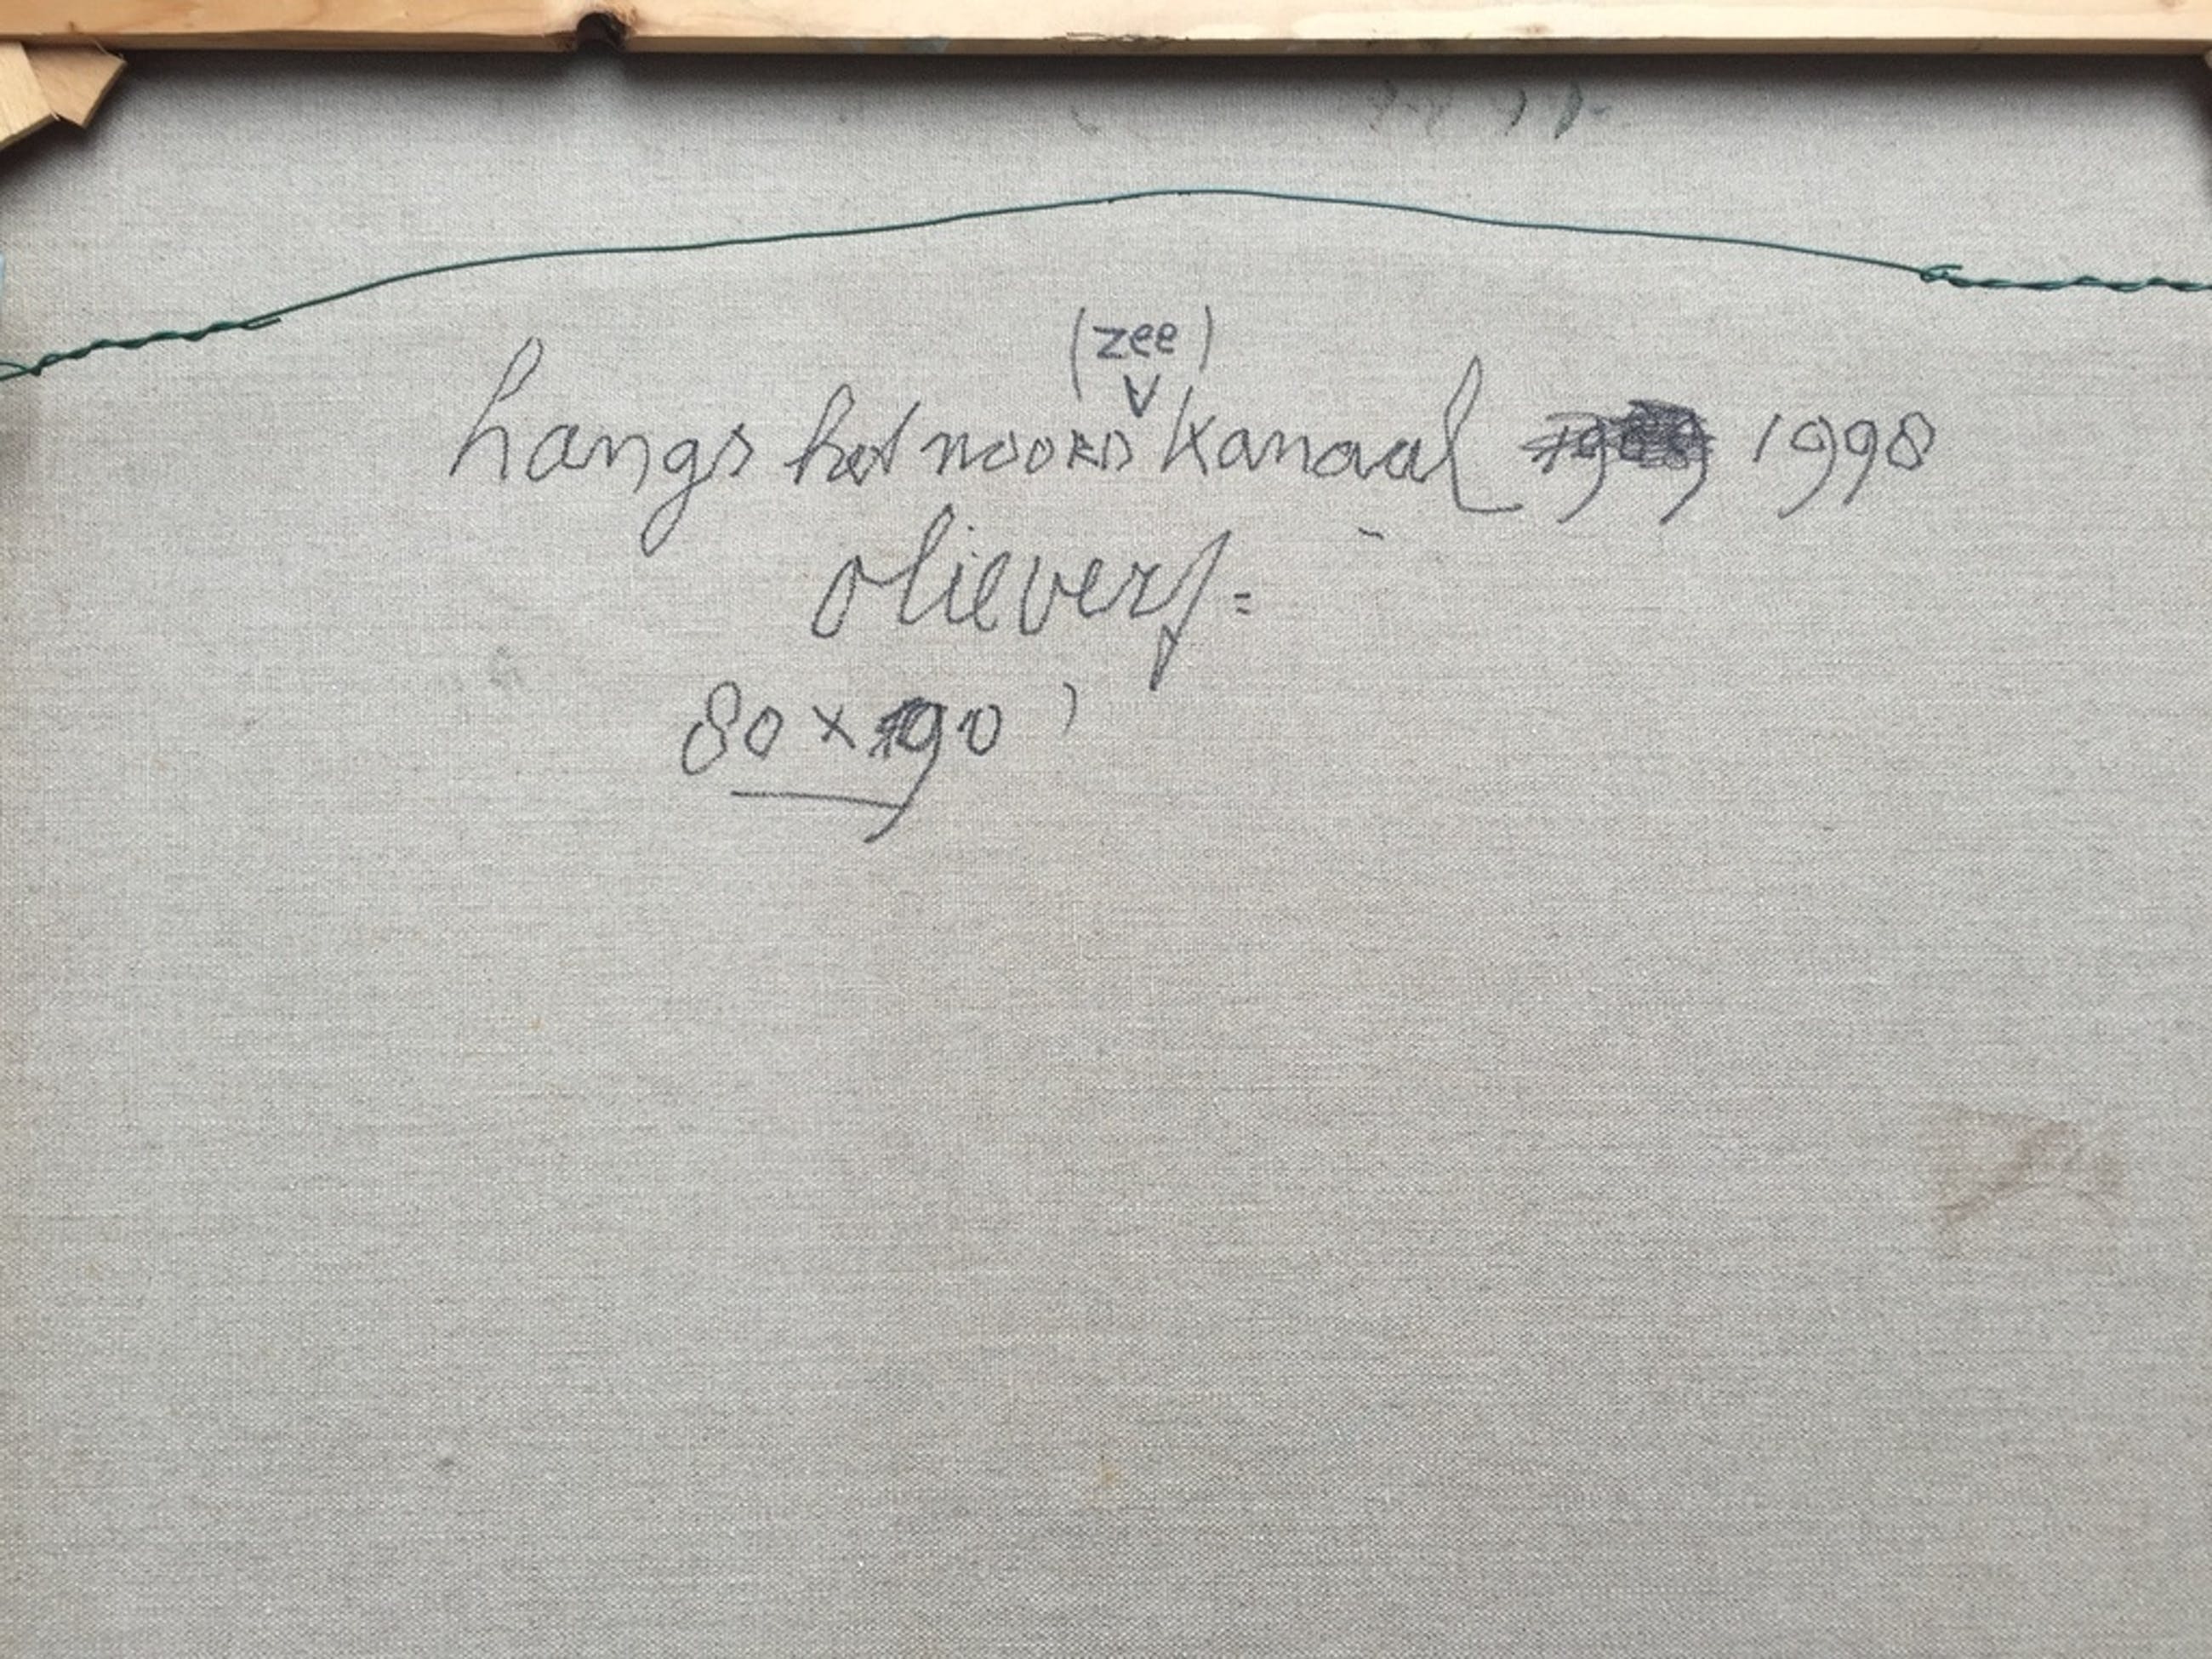 (zee)
V
Langs het noord kanaal 1998
olieverf =
80 x 90